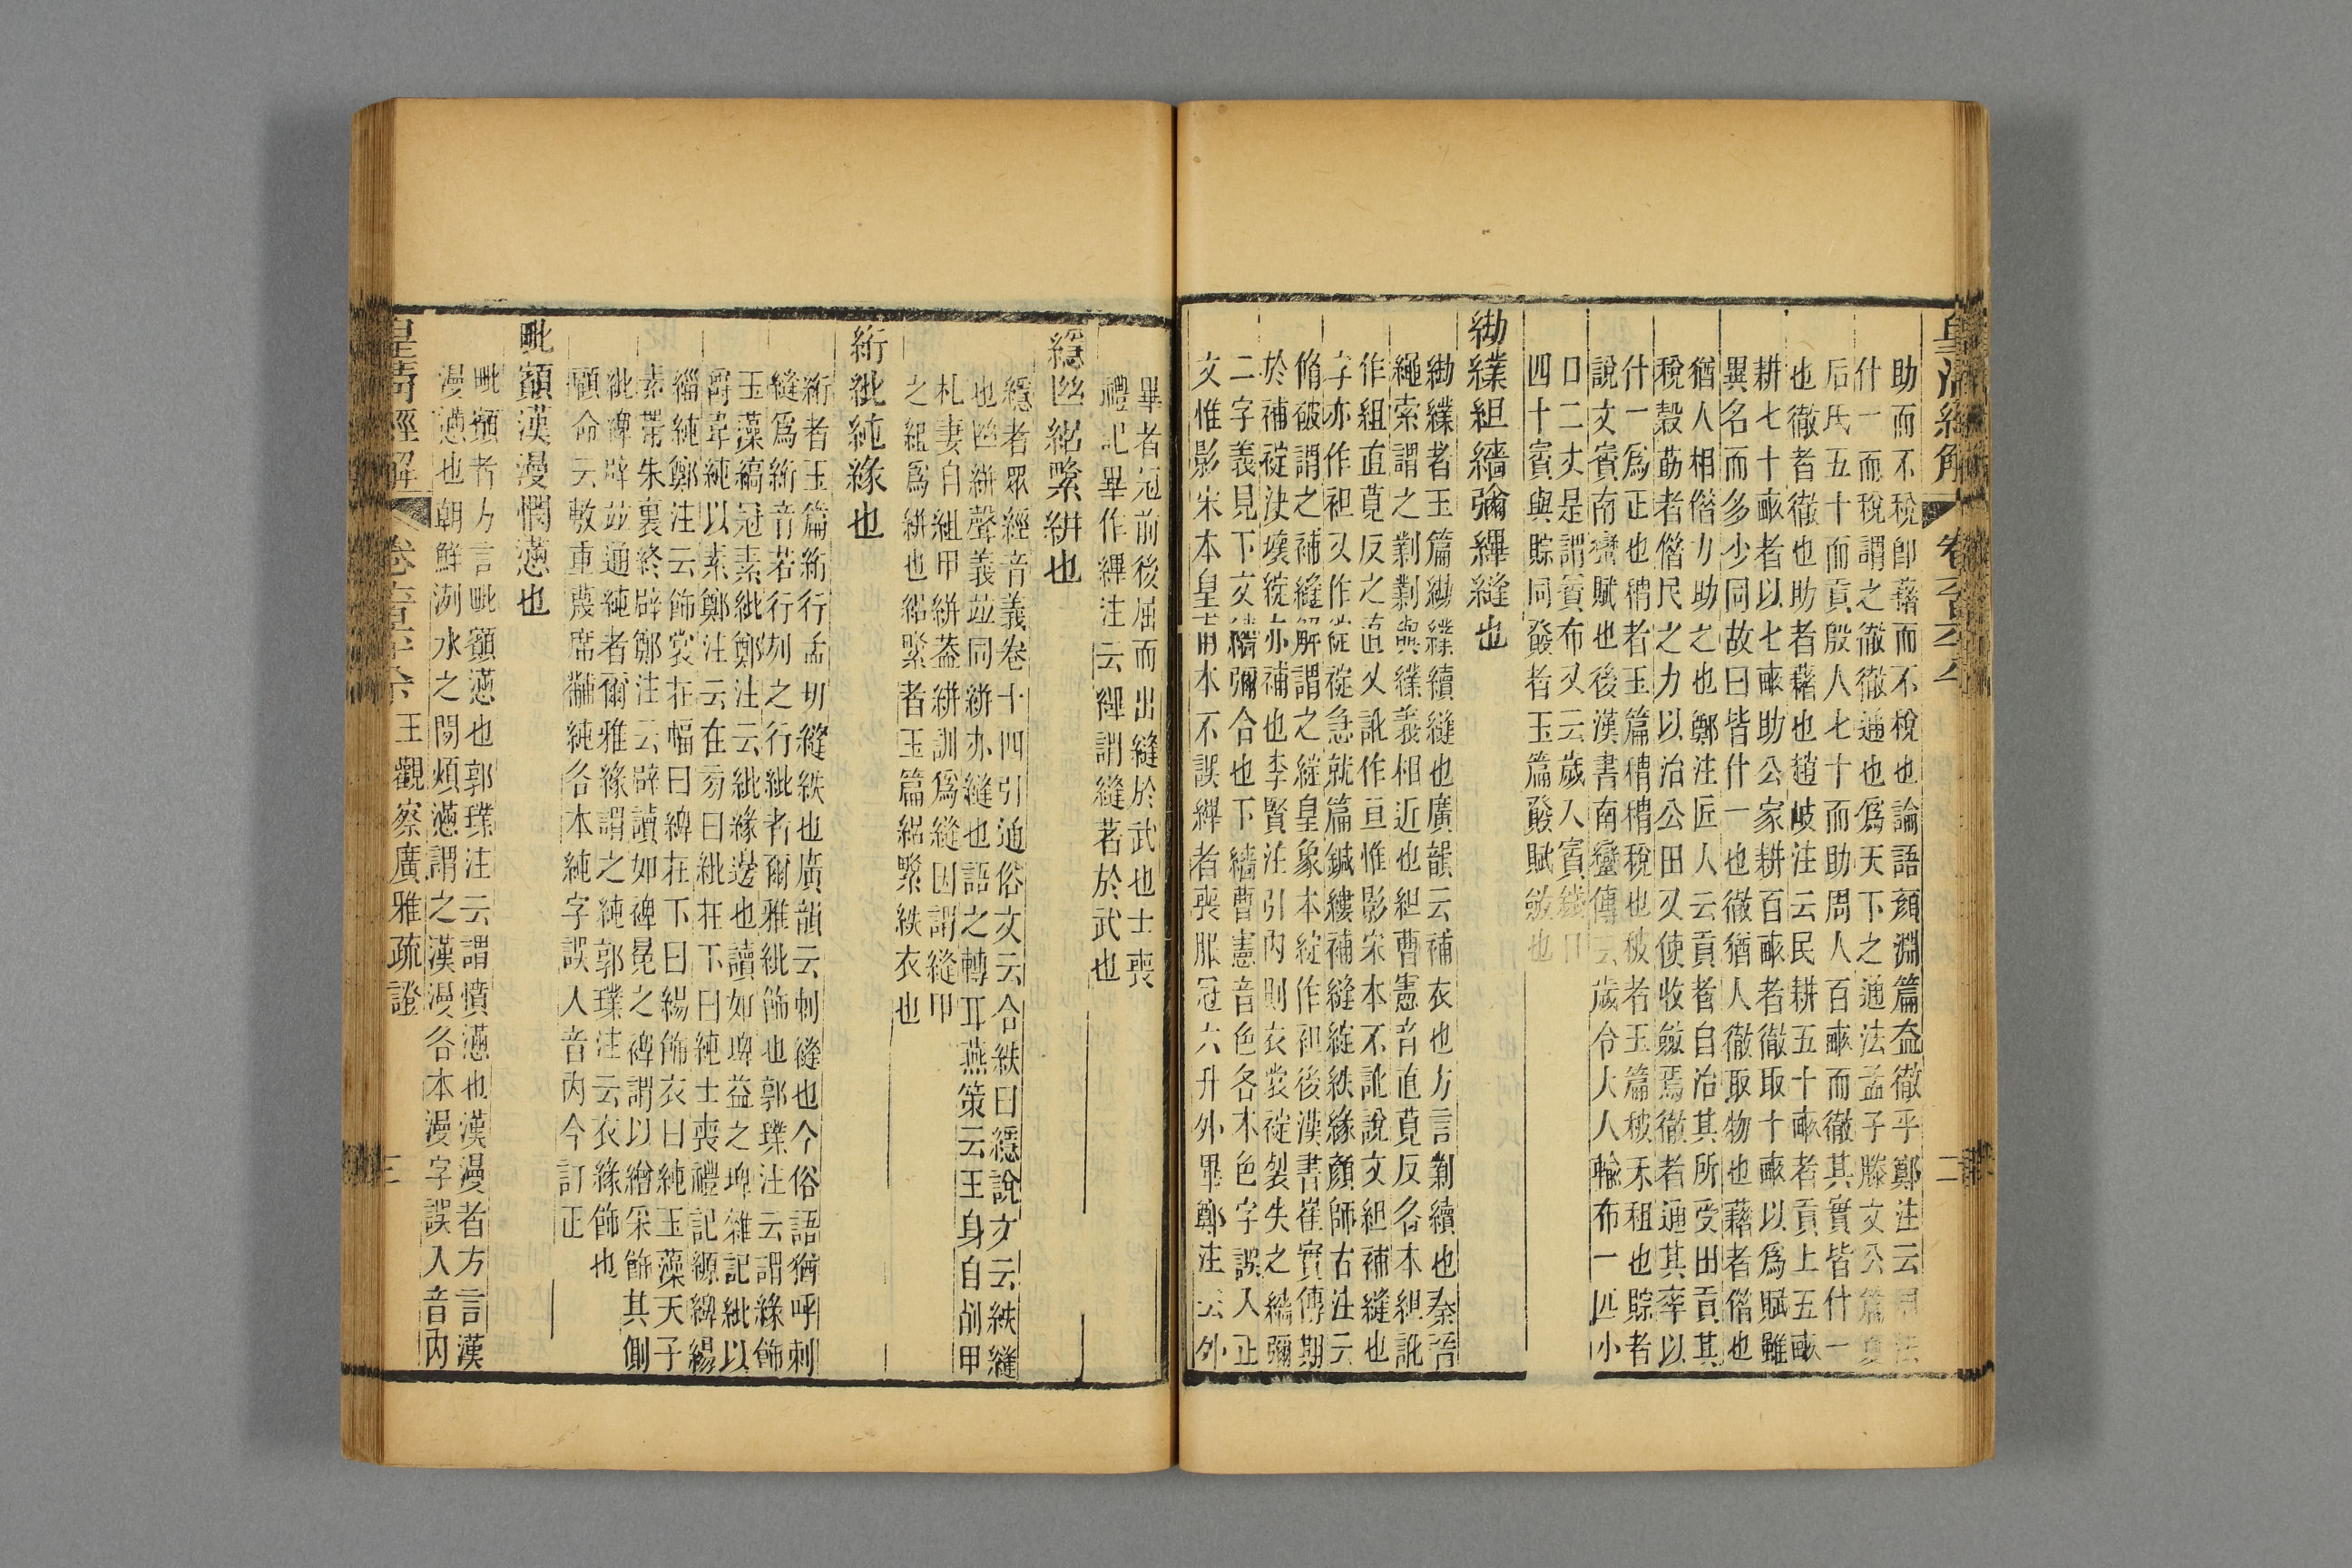 皇清經解
助而不稅卽藉而不稅也論語顏淵篇盍徹乎鄭注云周法
什一而稅謂之徹徹通也爲天下之通法孟子滕文公篇夏
后氏五十而貢殷人七十而助周人百畝而徹其實皆什一
也徹者徹也助者藉也趙岐注云民耕五十畝者貢上五畝
耕七十畝者以七畝助公家耕百畝者徹取十畝以爲賦雖
異名而多少同故曰皆什一也徹猶人徹取物也藉者借也
猶人相借力助之也鄭注匠人云貢者自治其所受田貢其
稅穀莇者借民之力以治公田又使收斂焉徹者通其率以
什一爲正也䅵者玉篇䅵䅵稅也䅵者玉篇䅵禾租也賩者
說文賨南蠻賦也後漢書南蠻傳云歲令大人輸布一匹小
口二丈是謂賨布又云歲入賨錢口
四十賨與賩同發者玉篇發賦斂也
緰緤組繬彌縪縫也
緰緤者玉篇緰緤續縫也廣韻云補衣也方言剿續也秦晉
繩索謂之剿剿與緤義相近也組曹憲音直莧反各本組訛
作組直莧反之直又訛作亘惟影宋本不訛說文組補縫也
字亦作袒又作綻䘺急就篇鍼縷補縫綻紩緣顏師古注云
脩破謂之補縫解謂之綻皇象本綻作袒後漢書崔寔傳期
於補䘺決壞綻亦補也李賢注引內則衣裳䘺裂失之繬彌
二字義見下文繬彌合也下繬曹憲音色各本色字誤入正
文惟影宋本皇甫本不誤縪者喪服冠六升外畢鄭注云外
畢者冠前後屈而出縫於武也士喪
禮記畢作縪注云縪謂縫著於武也
繧𢇁紹緊絣也
繧者眾經音義卷十四引通俗文云合紩曰繧說文云紩縫
也𢇁絣聲義竝同絣亦縫也語之轉耳燕策云王身自削甲
札妻自組甲絣葢絣訓爲縫因謂縫甲
之組爲絣也紹緊者玉篇紹緊紩衣也
絎紕純緣也
絎者玉篇絎行孟切縫紩也廣韻云刺縫也今俗語猶呼刺
縫爲絎音若行列之行紕者爾雅紕飾也郭璞注云謂緣飾
玉藻縞冠素紕鄭注云紕緣邊也讀如埤益之埤雜記紕以
爵韋純以素鄭注云在旁曰紕在下曰純士喪禮記縓綼緆
緇純鄭注云飾裳在幅曰綼在下曰緆飾衣曰純玉藻天子
素帶朱裏終辟鄭注云辟讀如裨冕之裨謂以繒采飾其側
紕裨辟竝通純者爾雅緣謂之純郭璞注云衣緣飾也
顧命云敷重蔑席黼純各本純字誤入音內今訂正
眦䫲漢漫憪懣也
眦䫲者方言眦䫲懣也郭璞注云謂憤懣也漢漫者方言漢
漫懣也朝鮮洌水之閒煩懣謂之漢漫各本漫字誤入音內
皇清經解 王觀察廣雅疏證